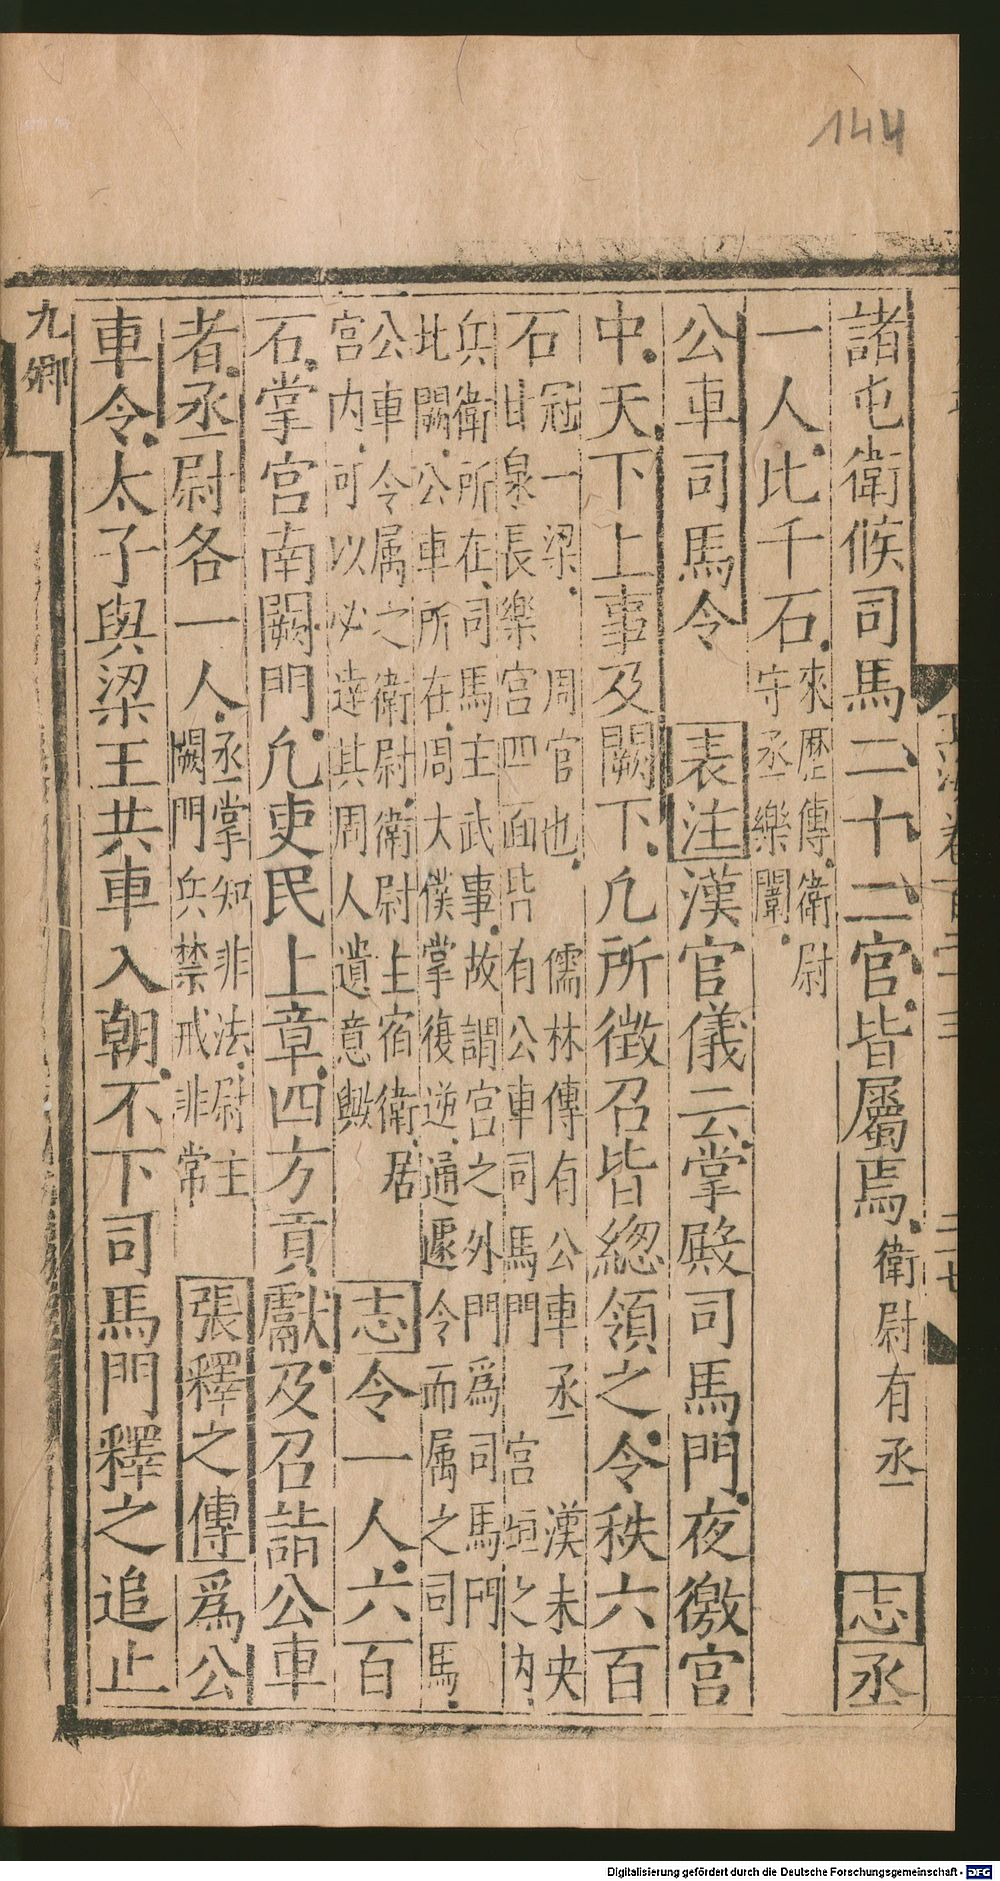 144
諸屯衛候司馬二十二官皆屬焉衛尉有丞志丞
一人比千石來歷傳衛尉
守丞樂闡
公車司馬令表注漢官儀云掌殿司馬門夜徼宮
中天下上事及闕下凡所徵召皆緫領之令秩六百
石冠一梁周官也儒林傳有公車丞漢未央
甘泉長樂宮四面皆有公車司馬門宮垣之內
兵衛所在司馬主武事故謂宮之外門為司馬門
北闕公車所在周大僕掌復逆通遽令而属之司馬
公車令属之衛尉衛尉主宿衛居
宮内可以必達其周人遺意歟志令一人六百
石掌宮南闕門凡吏民上章四方貢獻及召詣公車
者丞尉各一人丞掌知非法尉主
闕門兵禁戒非常張釋之傳為公
車令太子與梁王共車入朝不下司馬門釋之追止
九卿
Digitalisierung gefördert durch die Deutsche Forschungsgemeinschaft - DFG